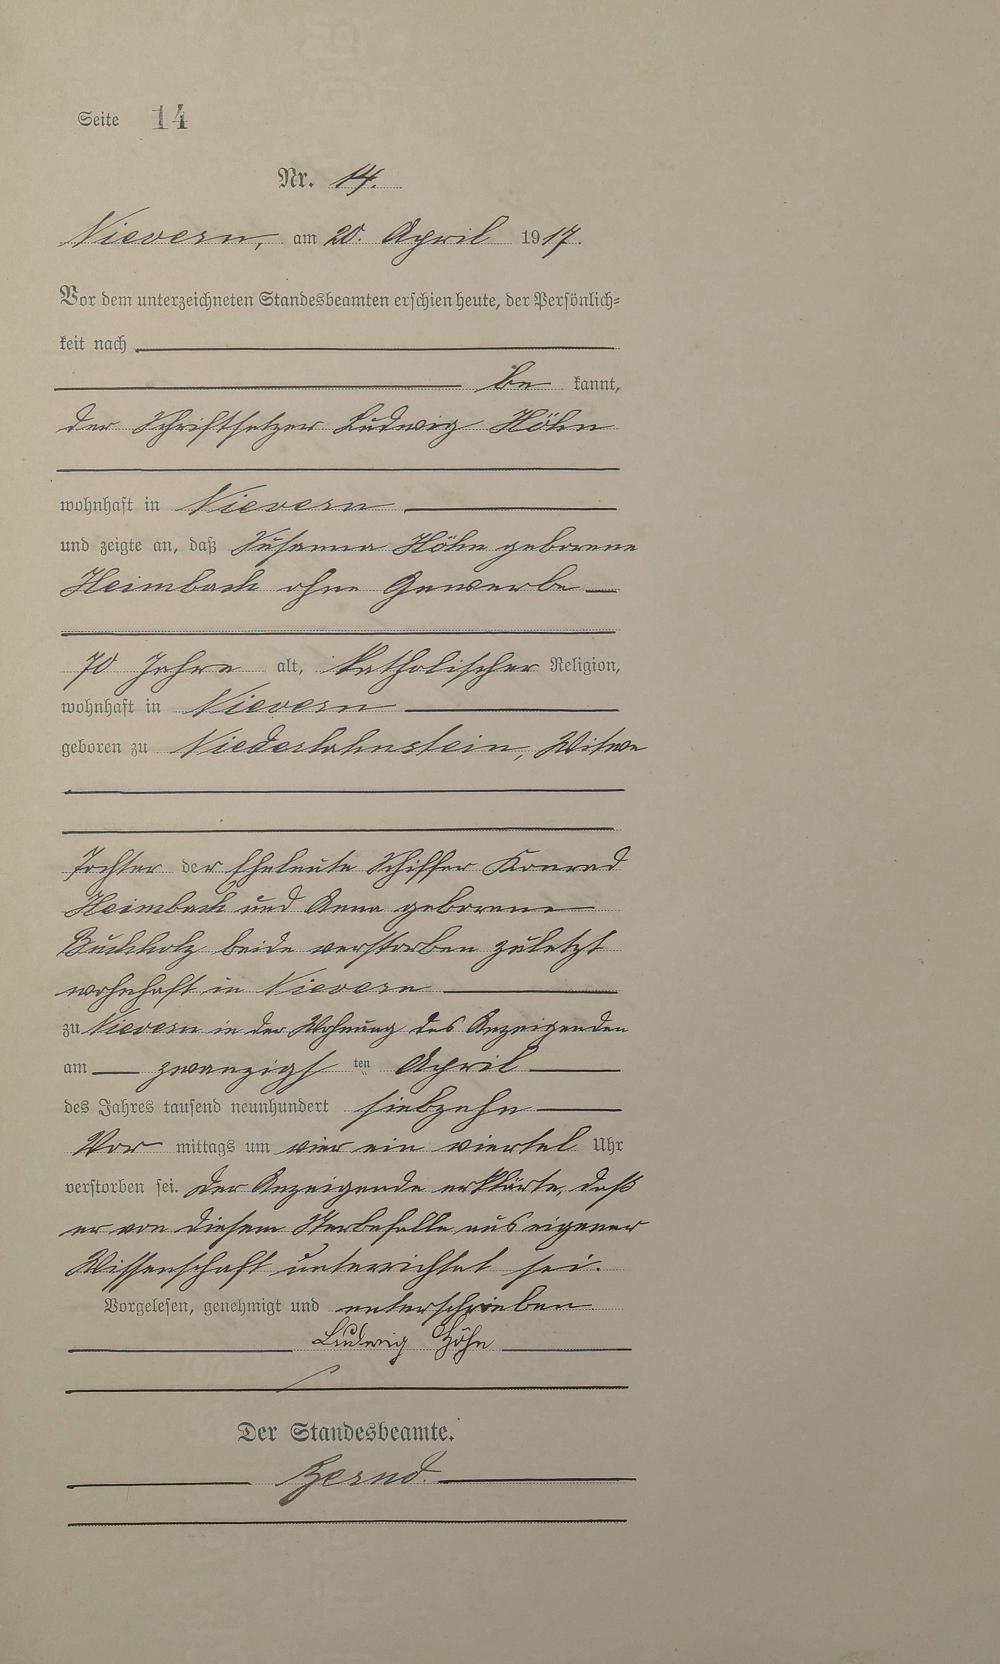 Seite 14
Nr. 14.
Nievern, am 20. April 1917.
Vor dem unterzeichneten Standesbeamten erschien heute, der Persönlich=
keit nach
be kannt,
der Schriftsetzer Ludwig Höhn
wohnhaft in Nievern
und zeigte an, daß Susanna Höhn geborene
Heimbach ohne Gewerbe
70 Jahre alt, katholischer Religion,
wohnhaft in Nievern
geboren zu Niederlahnstein, Witwe
Tochter der Eheleute Schiffer Konrad
Heimbach und Anna geborene
Buchholz beide verstorben zuletzt
wohnhaft in Nievern
zu Nievern in der Wohnung des Anzeigenden
am zwanzigs ten April
des Jahres tausend neunhundert siebzehn
Vor mittags um vier ein viertel Uhr
verstorben sei. Der Anzeigende erklärte, daß
er von diesem Sterbefalle aus eigener
Wissenschaft unterrichtet sei.
Vorgelesen, genehmigt und unterschrieben
Ludwig Höhn
Der Standesbeamte.